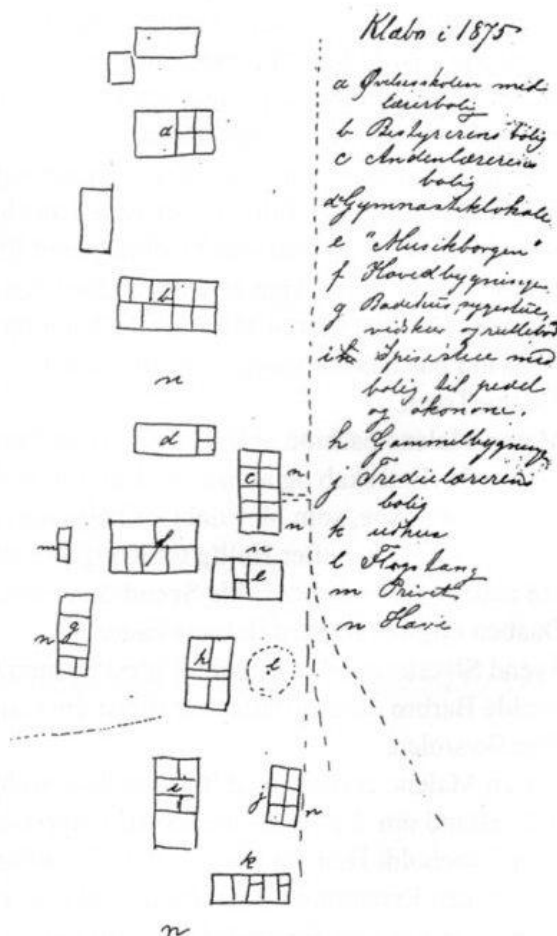 Klæbo i 1875
a Øvelsesskolen med
lærerbolig
b Bestyrerens bolig
c Andenlærerens
bolig
d Gymnastiklokale
e "Musikborgen"
f Hovedbygningen
g Badehus, sygestue,
vedskur og rullebod
i Spisestue med
bolig til pedel
og økonom.
h Gammelbygningen
j Tredielærerens
bolig
k udhus
l Flagstang
m Privet
n Have
a
b
n
d
c
n
n
m
f
n
e
n
g
h
l
i
j
n
k
n